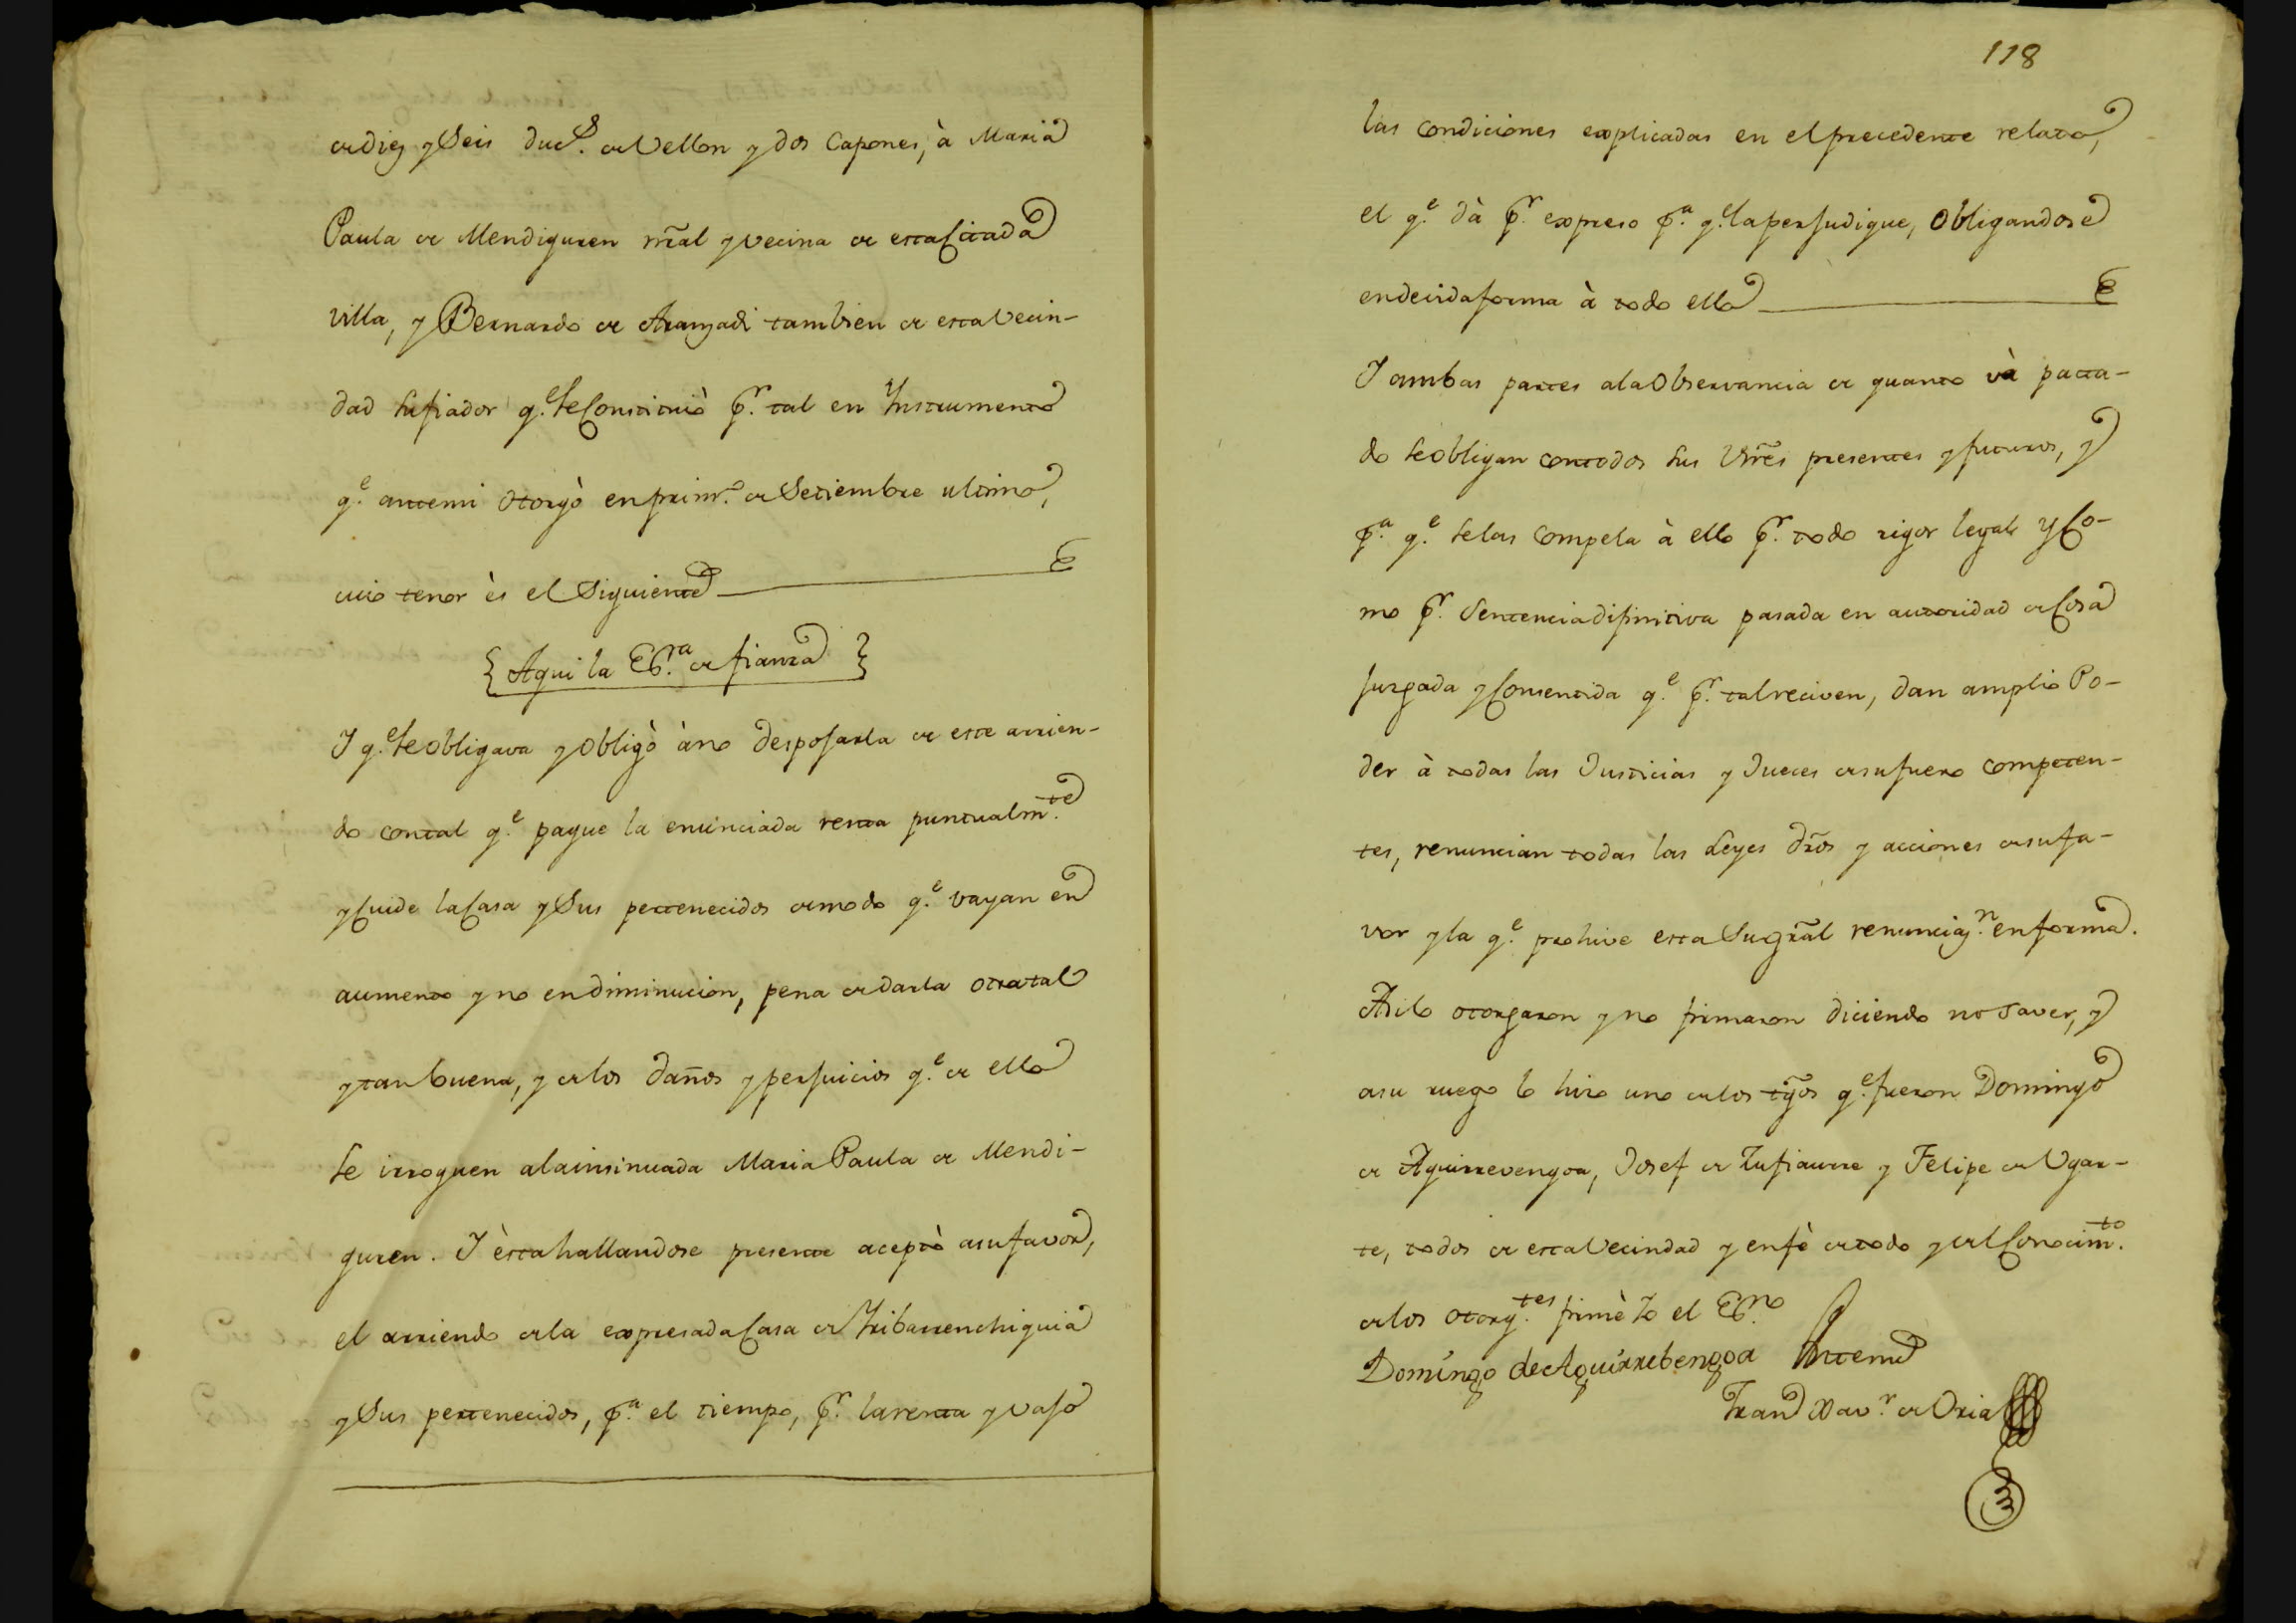 de diez y Seis duc.s de Vellon y dos Capones, à Maria
Paula de Mendiguren nral y vecina de esta citada
villa, y Bernardo de Aranzadi tambien de esta vecin-
dad su fiador q.e se Constituiò p.r tal en Instrumento
q.e ante mi otorgò en prim.o de Setiembre ultimo,
cuio tenor ès el Siguiente
{ Aqui la Es.ra de fianza }
I q.e se obligava y obligò à no despojarla de este arrien-
do con tal q.e pague la enunciada renta puntualm.te
y Cuide la Casa y Sus pertenecidos de modo q.e vayan en
aumento y no en diminucion, pena de darla otra tal
y tan buena, y de los daños y perjuicios q.e de ello
se irroguen a la insinuada Maria Paula de Mendi-
guren. I èsta hallandose presente aceptò a su favor,
el arriendo de la expresada Casa de Iribarrenchiquia
y Sus pertenecidos, p.a el tiempo, p.r la renta y vajo
118
las condiciones explicadas en el precedente relato,
el q.e dà p.r expreso p.a q.e la perjudique, obligandose
en devida forma à todo ello
I ambas partes a la observancia de quanto và pacta-
do se obligan con todos sus Vnes presentes y futuros, y
p.a q.e se las compela à ello p.r todo rigor legal y Co-
mo p.r Sentencia difinitiva pasada en autoridad de Cosa
juzgada y Consentida q.e p.r tal reciven, dan amplio Po-
der à todas las Justicias y Jueces de su fuero competen-
tes, renuncian todas las Leyes dr̃os y acciones de su fa-
vor y la q.e prohive esta Su gr̃al renunciaz.n en forma.
Asi lo otorgaron y no firmaron diciendo no saver, y
a su ruego lo hizo uno de los tg̃os q.e fueron Domingo
de Aguirrevengoa, Josef de Zufiaurre y Felipe de Ugar-
te, todos de esta Vecindad y en fè de todo y del Conocim.to
de los otorg.tes firmè Yo el Es.no
Domingo de Aguirrebengoa Ante mi
Fran.co Xav.r de Oria